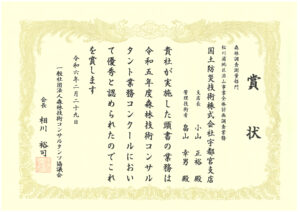 賞状
森林調査業務部門
国土防災技術株式会社宇都宮支店
支店長 小山 正裕 殿
管理技術者 畠山 幸男 殿
貴社が実施した頭書の業務は
令和五年度森林技術コンサル
タント業務コンクールにおい
て優秀と認められたのでこれ
を賞します
令和六年二月二十九日
一般社団法人森林技術コンサルタンツ協議会
会長 相川 裕司